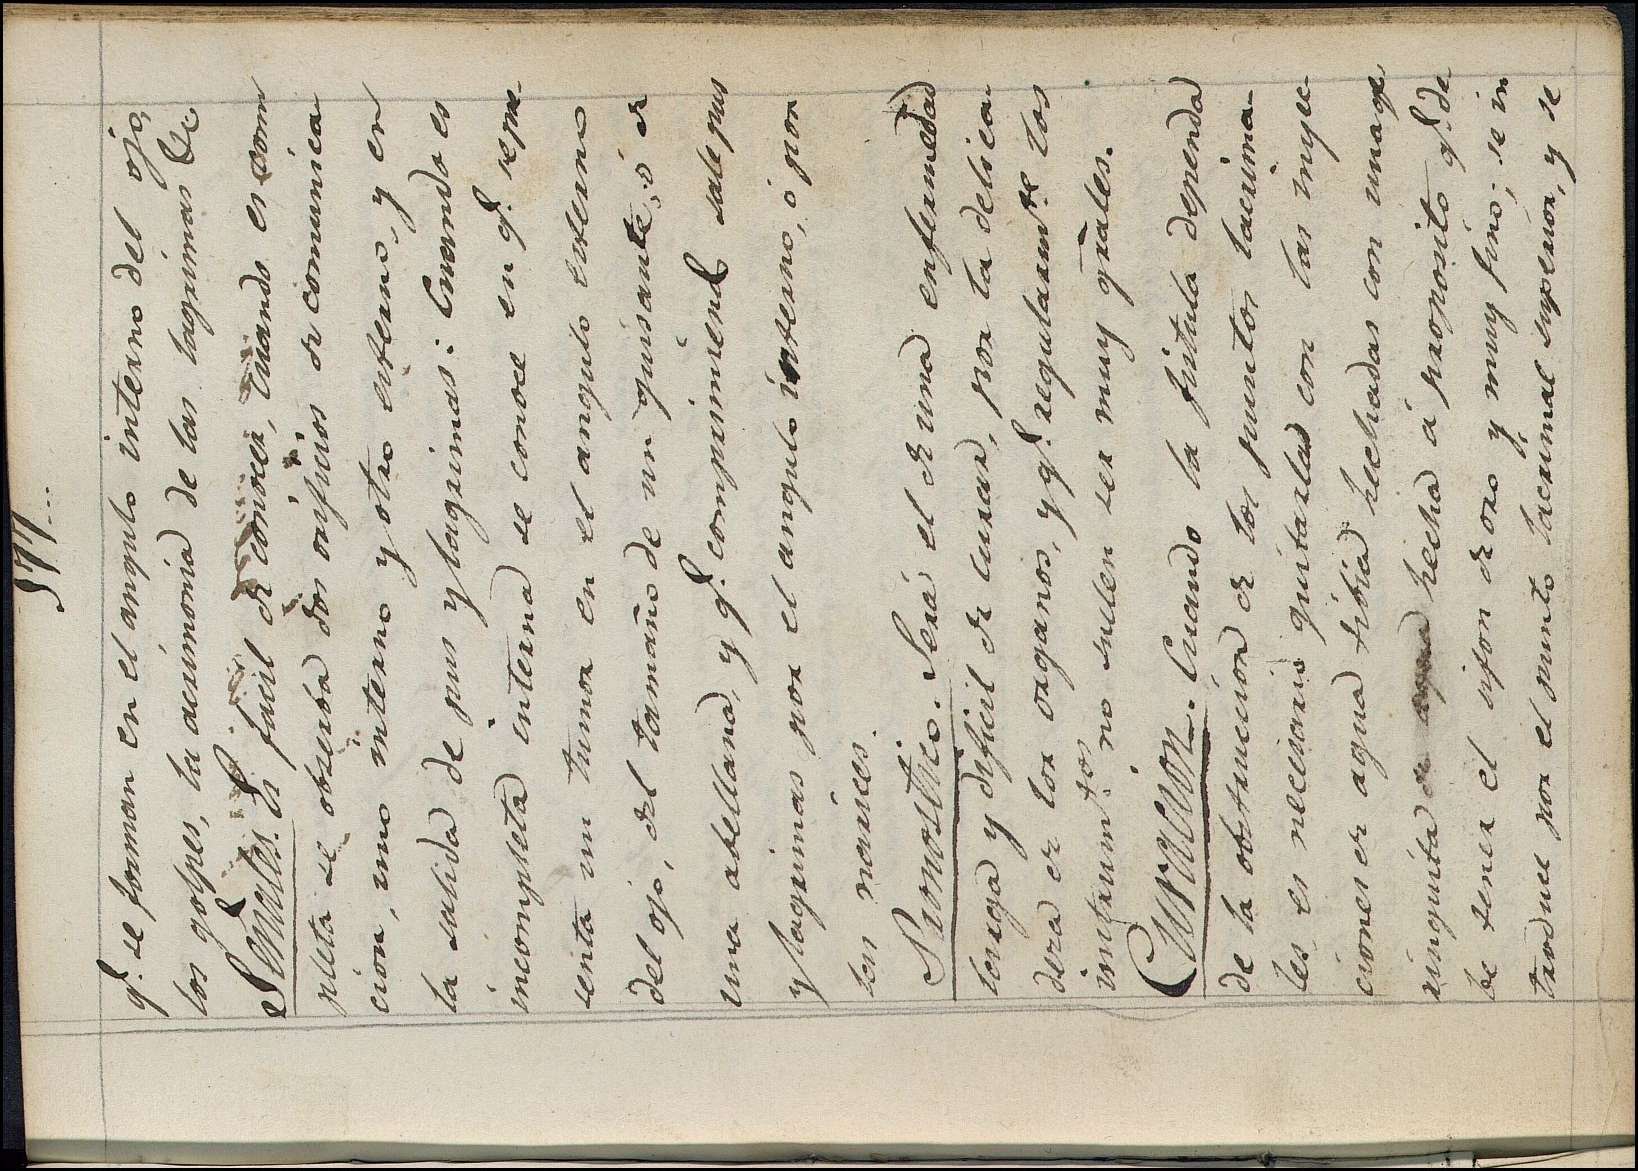 577...
q.e se forman en el angulo interno del ojo,
los golpes, la acrimonia de las lagrimas &.
Señales. Es facil de conocer, cuando es com
pleta se observa dos orificios de comunica
cion, uno interno y otro esterno, y en
la salida de pus y lagrimas: Cuando es
incompleta interna se conoce en q.e se pre-
senta un tumor en el angulo esterno
del ojo, del tamaño de un guisante, o de
una abellana, y q.e comprimiend.l sale pus
y lagrimas por el angulo interno, ó por
las narices.
Pronostico. Será el de una enfermedad
larga y dificil de curar, por la delica-
deza de los organos, y q.e regularm.te los
instrum.tos no suelen ser muy yguales.
Curacion. Cuando la fistula dependa
de la obstruccion de los puntos lacrima-
les es necesario quitarlas con las inyec-
ciones de agua tibia hechadas con una ge
ringuita de agua hecha á proposito q.e de-
be tener el sifon de oro y muy fino; se in
troduce por el punto lacrimal superior, y se